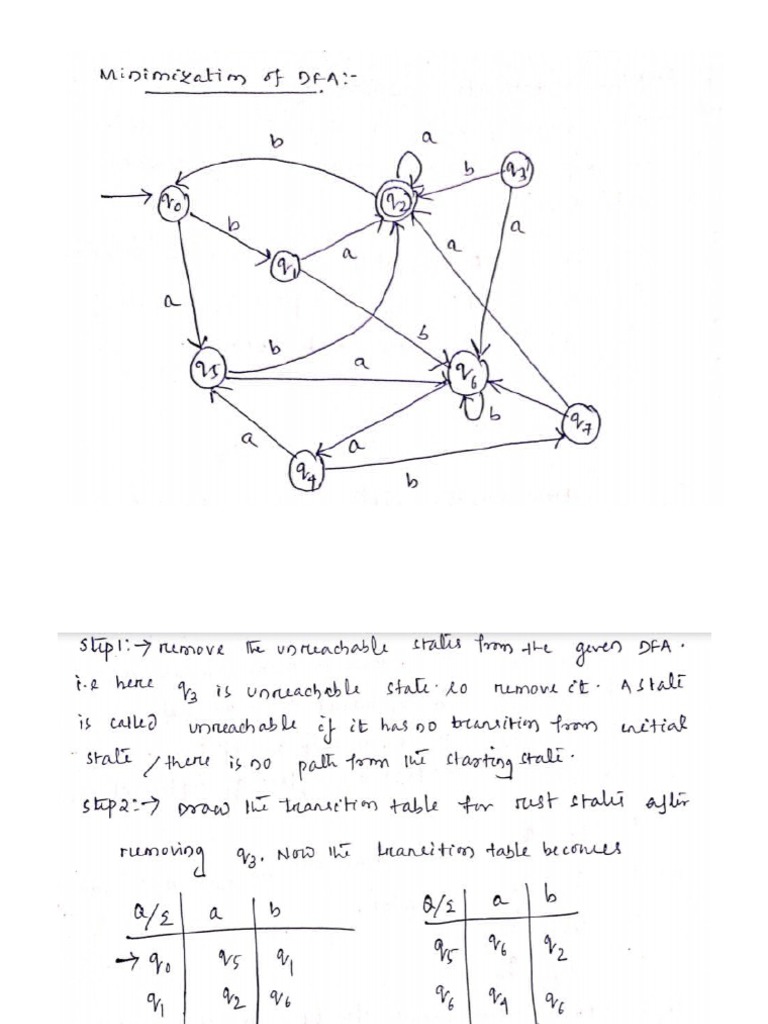 Minimization of DFA:-
b
a
q0
b
q2
b
q3
b
q1
a
a
a
a
b
b
a
q5
q6
b
q7
a
a
q4
b
Step1:→ remove the unreachable states from the given DFA.
i.e here q3 is unreachable state. so remove it. A state
is called unreachable if it has no transition from initial
state / there is no path from the starting state.
Step2:→ Draw the transition table for rest state after
removing q3. Now the transition table becomes
Q/Σ a b
→ q0 q5 q1
q1 q2 q6
Q/Σ a b
q5 q6 q2
q6 q4 q6